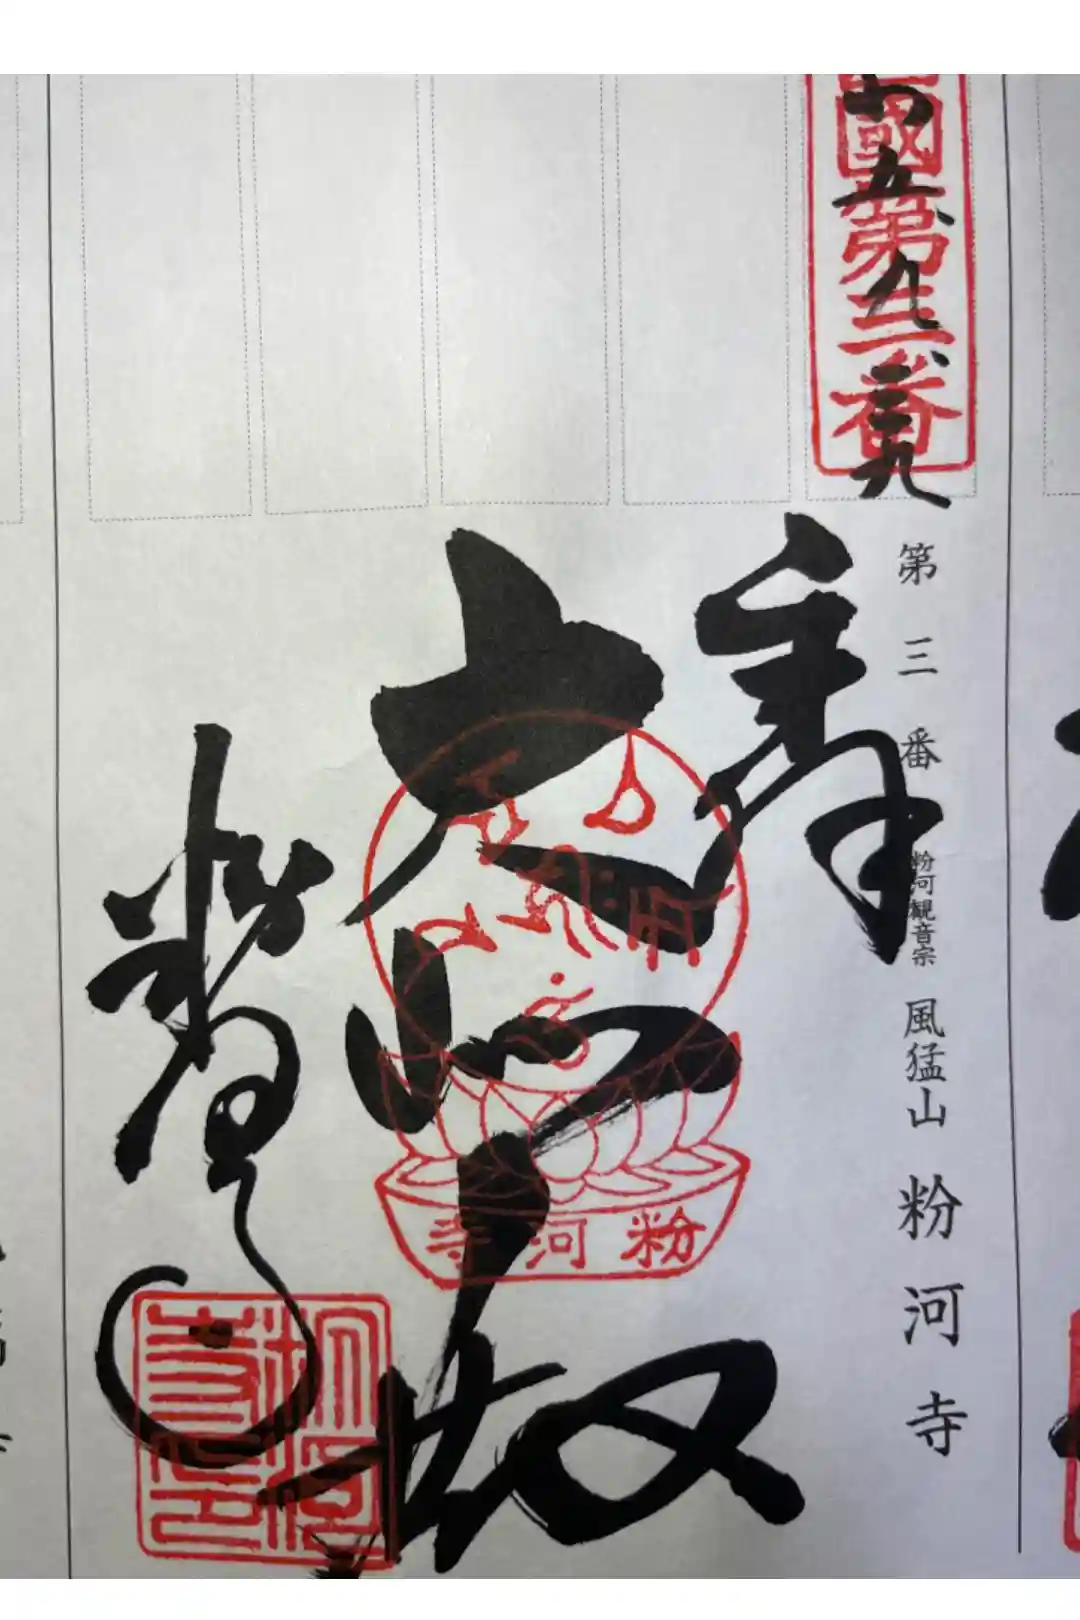 國第三番
五、九、
第三番 粉河観音宗 風猛山 粉河寺
奉
大悲殿
粉河寺
粉河寺